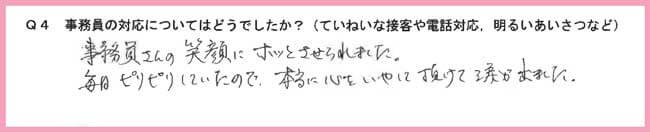 Q4 事務員の対応についてはどうでしたか？（ていねいな接客や電話対応，明るいあいさつなど）
事務員さんの笑顔にホッとさせられました。
毎日ピリピリしていたので、本当に心をいやして頂けて涙が出ました。